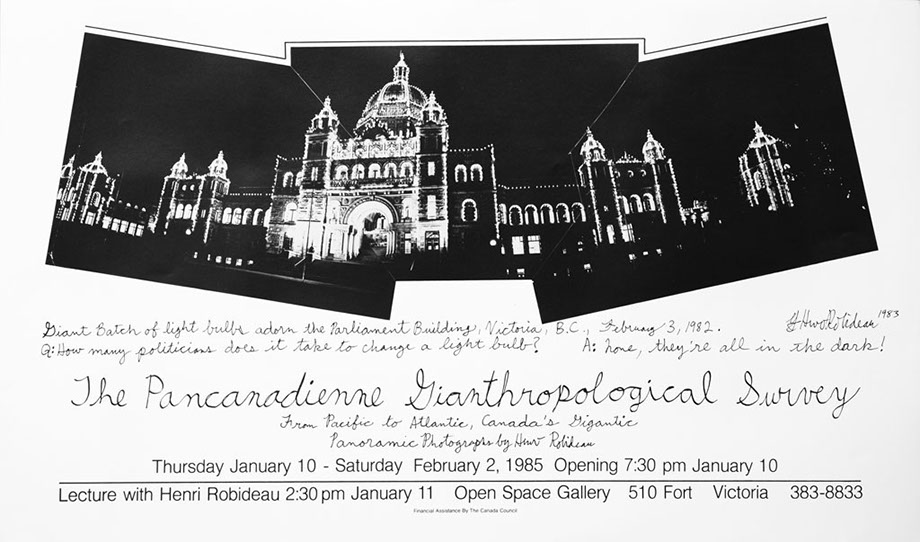 Giant Batch of light bulbs adorn the Parliament Building, Victoria, B.C., February 3, 1982.
Henri Robideau 1983
Q: How many politicians does it take to change a light bulb? A: None, they're all in the dark!
The Pancanadienne Gianthropological Survey
From Pacific to Atlantic, Canada's Gigantic
Panoramic Photographs by Henri Robideau
Thursday January 10 - Saturday February 2, 1985 Opening 7:30 pm January 10
Lecture with Henri Robideau 2:30 pm January 11 Open Space Gallery 510 Fort Victoria 383-8833
Financial Assistance By The Canada Council